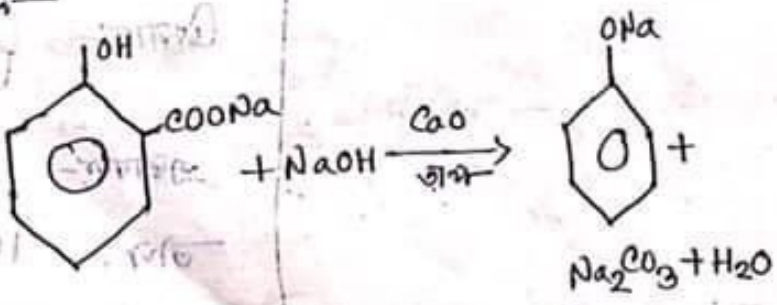 OH
COONa
+ NaOH
CaO
তাপ
ONa
+
Na2CO3 + H2O